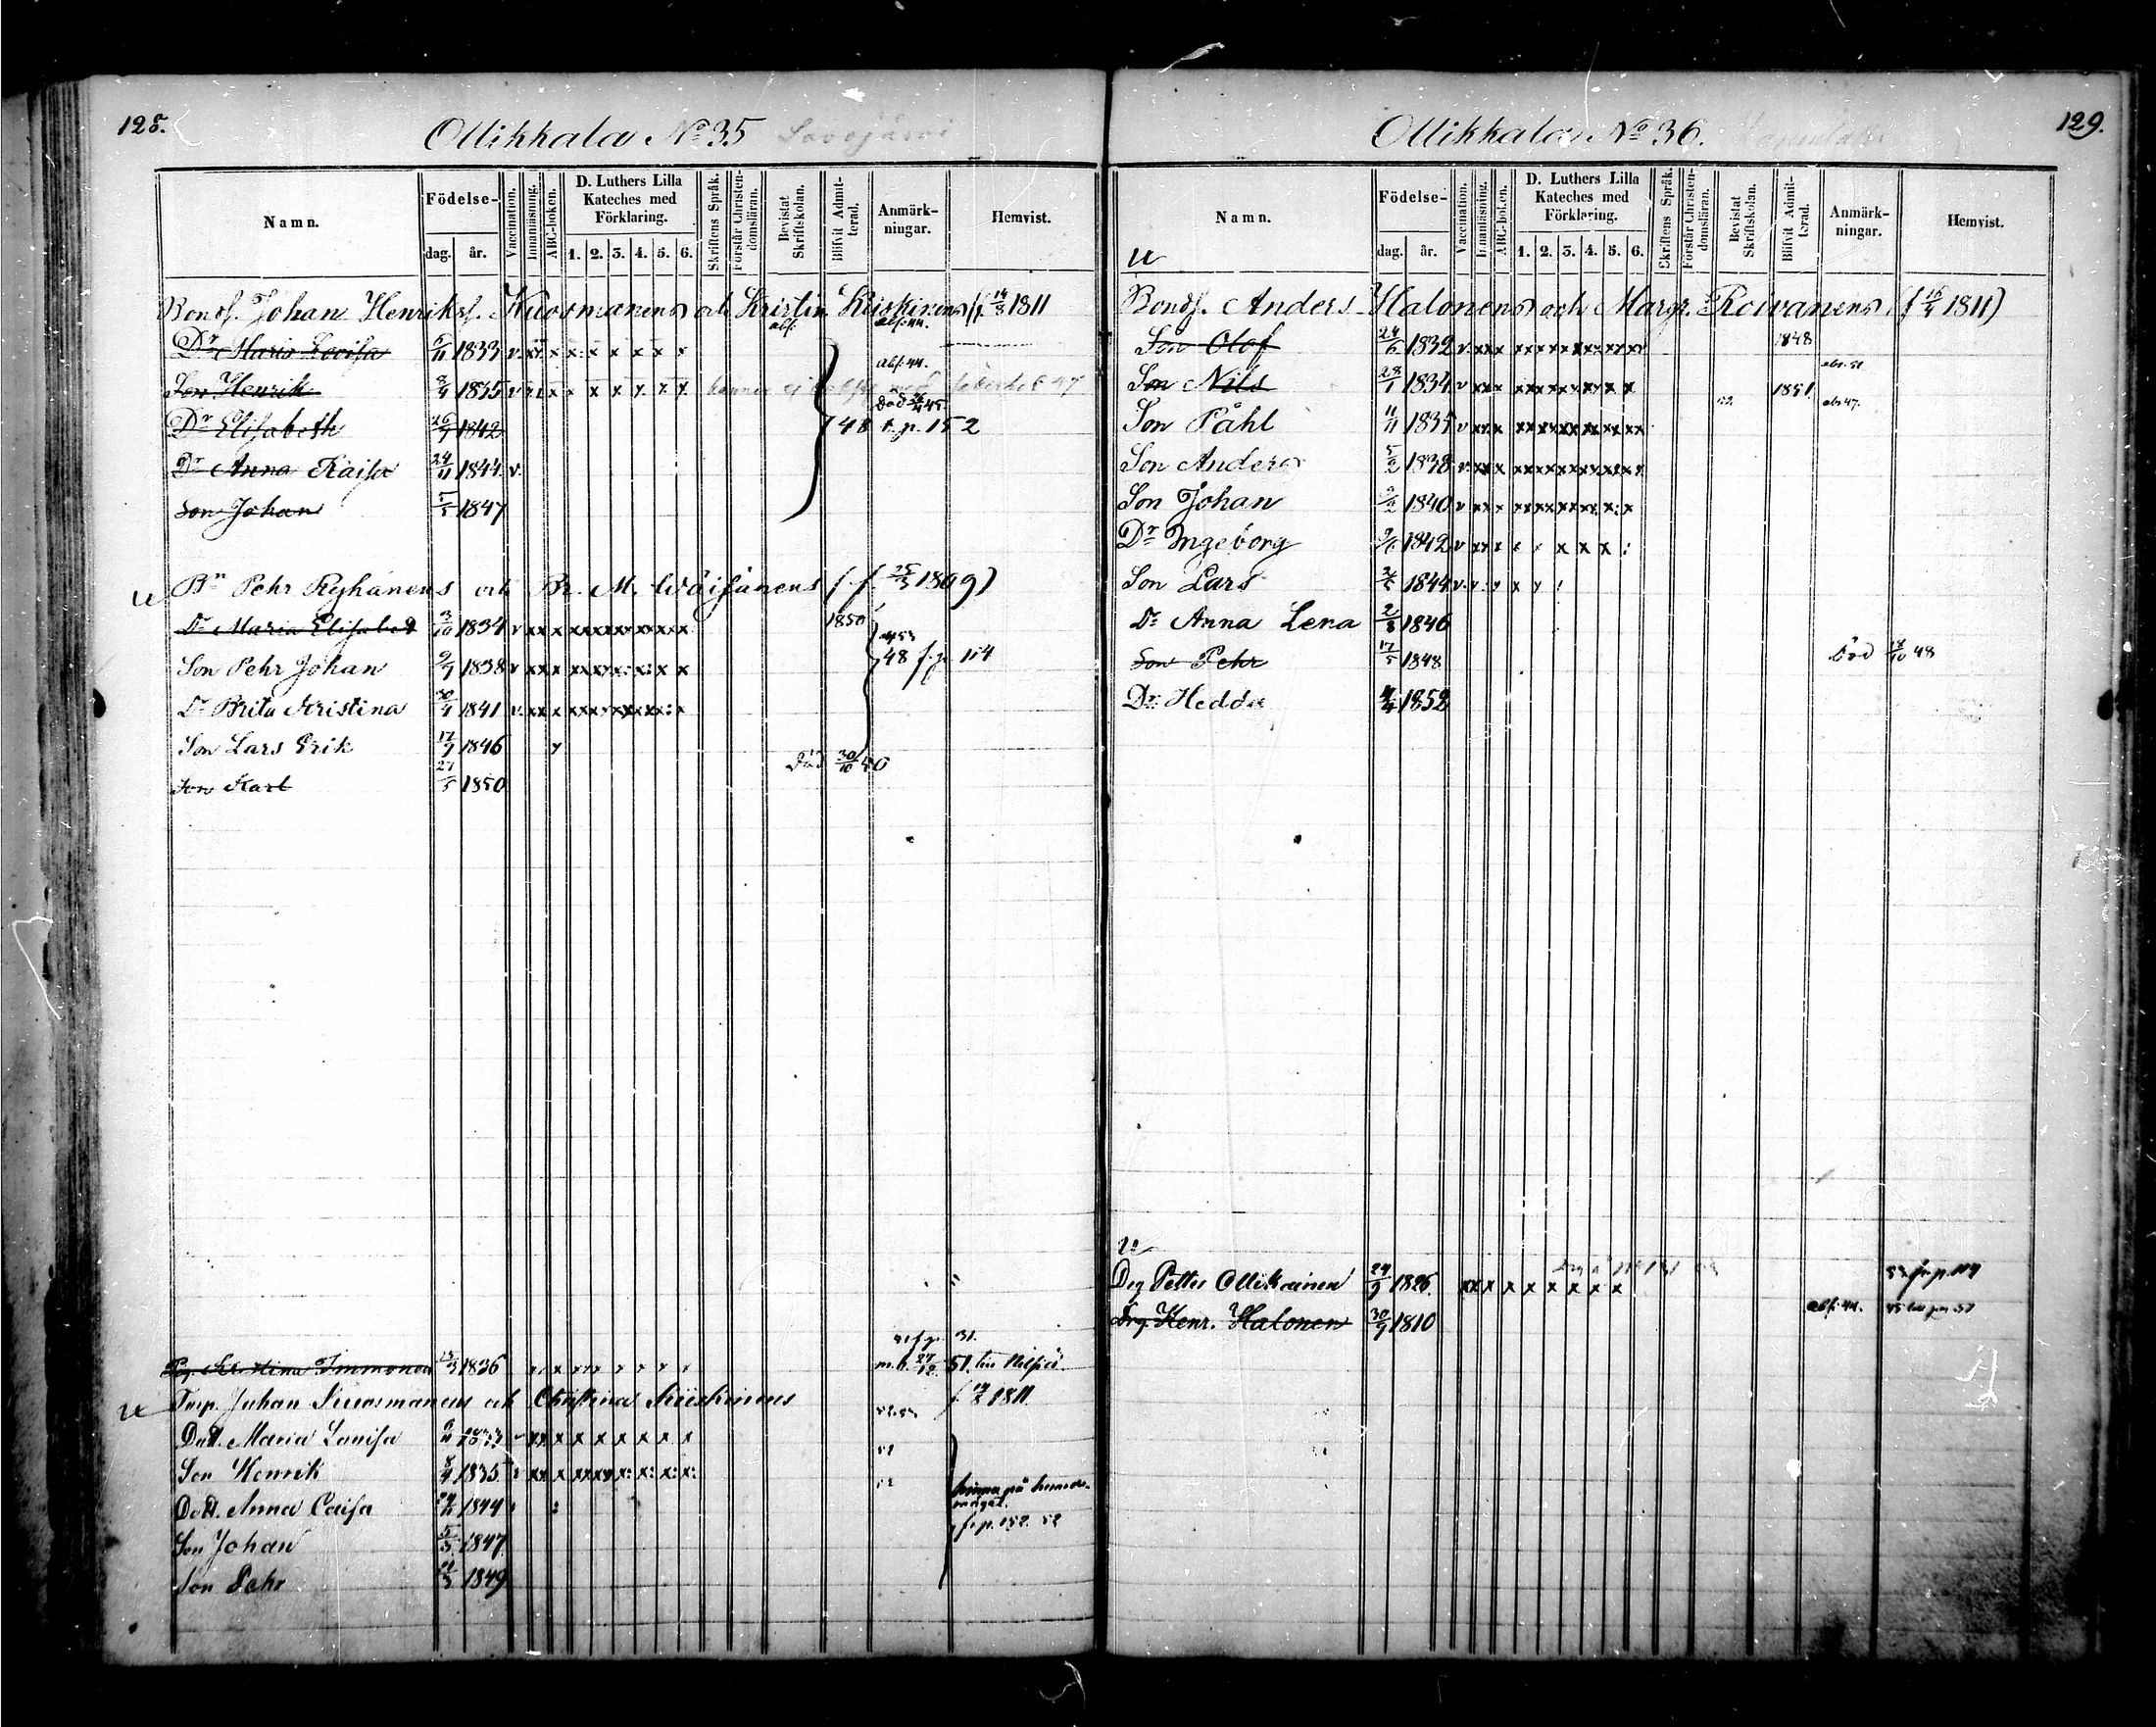 128.
Ollikkala No 35 Savojärvi
Namn. Födelse- dag. år. Vaccination. Innanläsning. ABC-boken. D. Luthers Lilla Kateches med Förklaring. 1. 2. 3. 4. 5. 6. Skriftens Språk. Förstår Christendomsläran. Bevistat Skriftskolan. Blifvit Admitterad. Anmärkningar. Hemvist.
Bonds. Johan Henriks. Kuosmanens och Kristin Kiiskinens (f. 14/8 1811
Dr Maria Lovisa 6/11 1833 v. xx x x: x x x x x abs. 44.
Son Henrik 8/4 1835 v x x x x x x x x abs. 44.
Dr Elisabeth 26/7 1842 Död 45 48 f. p. 152
Dr Anna Kaisa 24/11 1844 v.
Son Johan 5/5 1847
Bn Pehr Reijhänens och Br. M. Wäisänens (f. 25/3 1809)
Dr Maria Elisabet 3/10 1834 v xx x xxxxxxxxx x 1850
Son Pehr Johan 9/9 1838 v xx x xxxx x: x: x x 48 f. p. 114
Dr Brita Kristina 30/4 1841 v. xx x xxxxxxxxx: x
Son Lars Erik 17/9 1846 y
Son Karl 27/5 1850 Död 30/10 50
51 f. p. 31.
Pig. Kristina Immonen 13/3 1836 x x xxx x x x x m. b. 27/12 51. till
Torp. Juhan Kuosmanens och Christina Kiiskinens f. 14/8 1811.
Dott. Maria Lovisa 6/11 1833 xx x x x x x x x
Son Henrik 8/4 1835 xx x xxxx x: x: x: x:
Dott. Anna Caisa 24/11 1844
Son Johan 5/5 1847 f. p. 152. 52
Son Pehr 1849
129.
Ollikkala No 36.
Namn. Födelse- dag. år. Vaccination. Innanläsning. ABC-boken. D. Luthers Lilla Kateches med Förklaring. 1. 2. 3. 4. 5. 6. Skriftens Språk. Förstår Christendomsläran. Bevistat Skriftskolan. Blifvit Admitterad. Anmärkningar. Hemvist.
Bonds. Anders Halonens och Margr. Roivanens (f 16/4 1811)
Son Olof 24/6 1832 v. xx x xxxxxxxxxxx 1848
Son Nils 28/1 1834 v xx x xxxxxxxx x x 1851 abs. 51
Son Påhl 11/11 1835 v xx x xxxxxxxxxxx abs 47.
Son Anders 5/2 1838 v xx x xxxxxxxxxxx
Son Johan 1840 v xx x xxxxxxxx x: x
Dr Ingeborg 9/6 1842 v xx x x x x x
Son Lars 1844 v. y x y
Dr Anna Lena 2/8 1846
Son Pehr 17/5 1848 Död /10 48
Dr Hedda 4/4 1852
Drg Petter Ollikainen 24/9 1826. xx x x x x x x x fr p. 114
Drg. Henr. Halonen 30/9 1810 abs. 44.